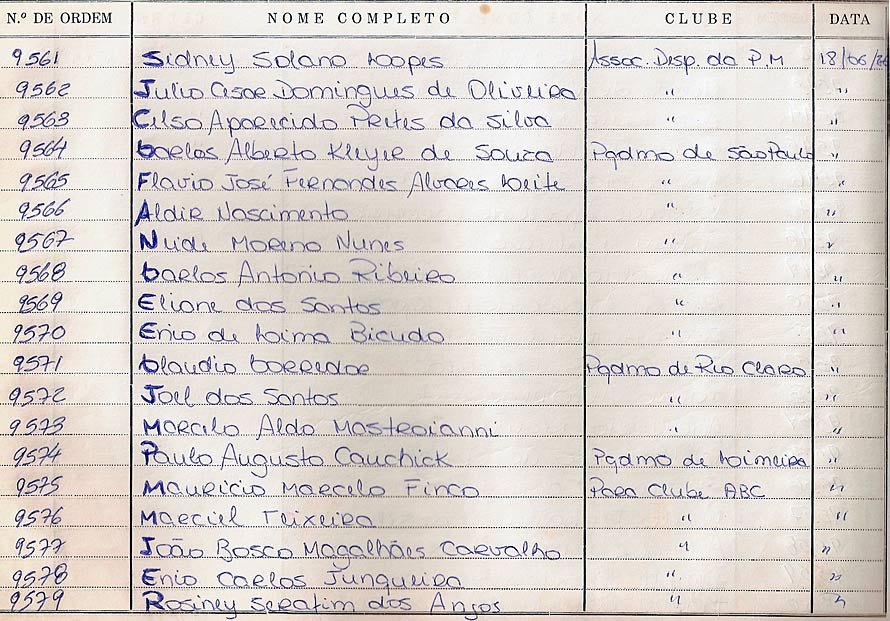 N.º DE ORDEM NOME COMPLETO CLUBE DATA
9561 Sidney Solano Lopes Assoc. Desp. da P.M 18/06/
9562 Julio Cesar Domingues de Oliveira " "
9563 Celso Aparecido Prites da Silva " "
9564 Carlos Alberto Kleyer de Souza Pqdmo de São Paulo "
9565 Flavio José Fernandes Alvares Leite " "
9566 Aldir Nascimento " "
9567 Neide Moreno Nunes " "
9568 Carlos Antonio Ribeiro " "
9569 Eliane dos Santos " "
9570 Enio de Lima Bicudo " "
9571 Claudio Corredor Pqdmo de Rio Claro "
9572 Joel dos Santos " "
9573 Marcelo Aldo Mastroianni " "
9574 Paulo Augusto Cauchick Pqdmo de Limeira "
9575 Mauricio Marcelo Finco Para Clube ABC "
9576 Marciel Teixeira " "
9577 João Bosco Magalhães Carvalho " "
9578 Enio Carlos Junqueira " "
9579 Rosiney Serafim dos Anjos " "